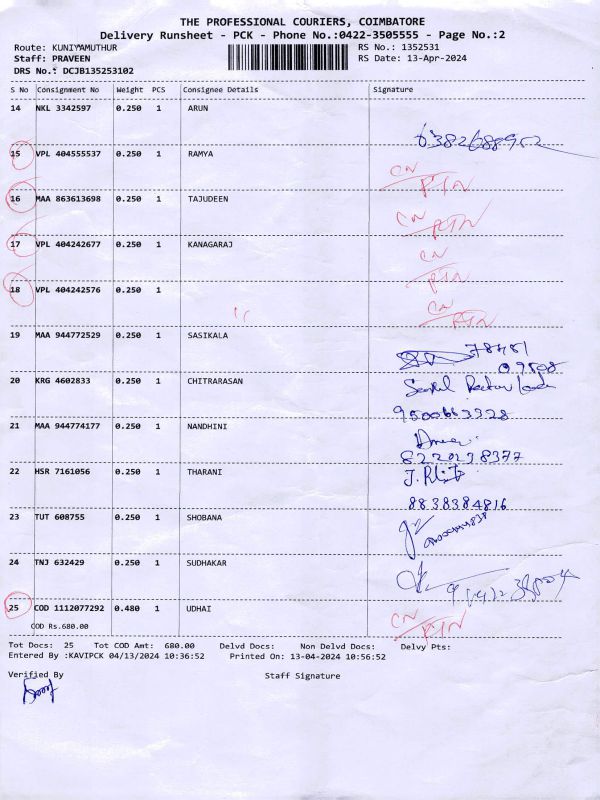 THE PROFESSIONAL COURIERS, COIMBATORE
Delivery Runsheet - PCK - Phone No.:0422-3505555 - Page No.:2
Route: KUNIYAMUTHUR RS No.: 1352531
Staff: PRAVEEN RS Date: 13-Apr-2024
DRS No.: DCJB135253102
S No Consignment No Weight PCS Consignee Details Signature
14 NKL 3342597 0.250 1 ARUN
15 VPL 404555537 0.250 1 RAMYA CN
RTN
16 MAA 863613698 0.250 1 TAJUDEEN CN
RTN
17 VPL 404242677 0.250 1 KANAGARAJ CN
RTN
18 VPL 404242576 0.250 1 CN
RTN
19 MAA 944772529 0.250 1 SASIKALA
20 KRG 4602833 0.250 1 CHITRARASAN
9500663328
21 MAA 944774177 0.250 1 NANDHINI
8220238377
22 HSR 7161056 0.250 1 THARANI
8838384816
23 TUT 608755 0.250 1 SHOBANA
24 TNJ 632429 0.250 1 SUDHAKAR
25 COD 1112077292 0.480 1 UDHAI CN
COD Rs.680.00 RTN
Tot Docs: 25 Tot COD Amt: 680.00 Delvd Docs: Non Delvd Docs: Delvy Pts:
Entered By :KAVIPCK 04/13/2024 10:36:52 Printed On: 13-04-2024 10:56:52
Verified By Staff Signature